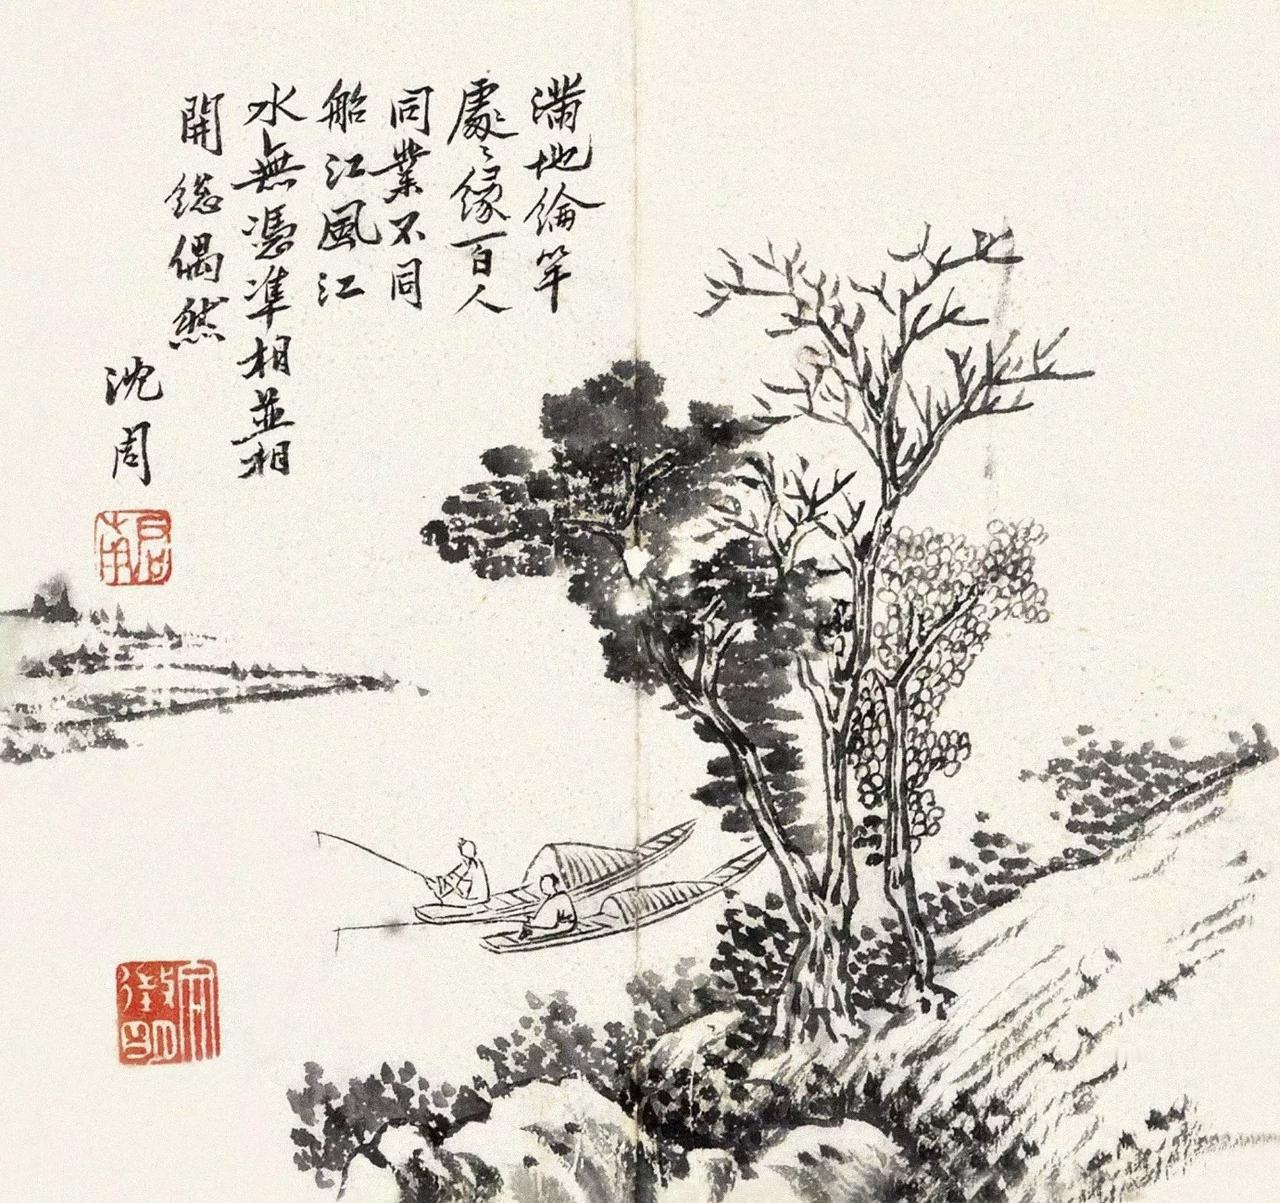 滿地綸竿
處〻緣百人
同業不同
船江風江
水無憑準相並相
開總偶然
沈周
啓南